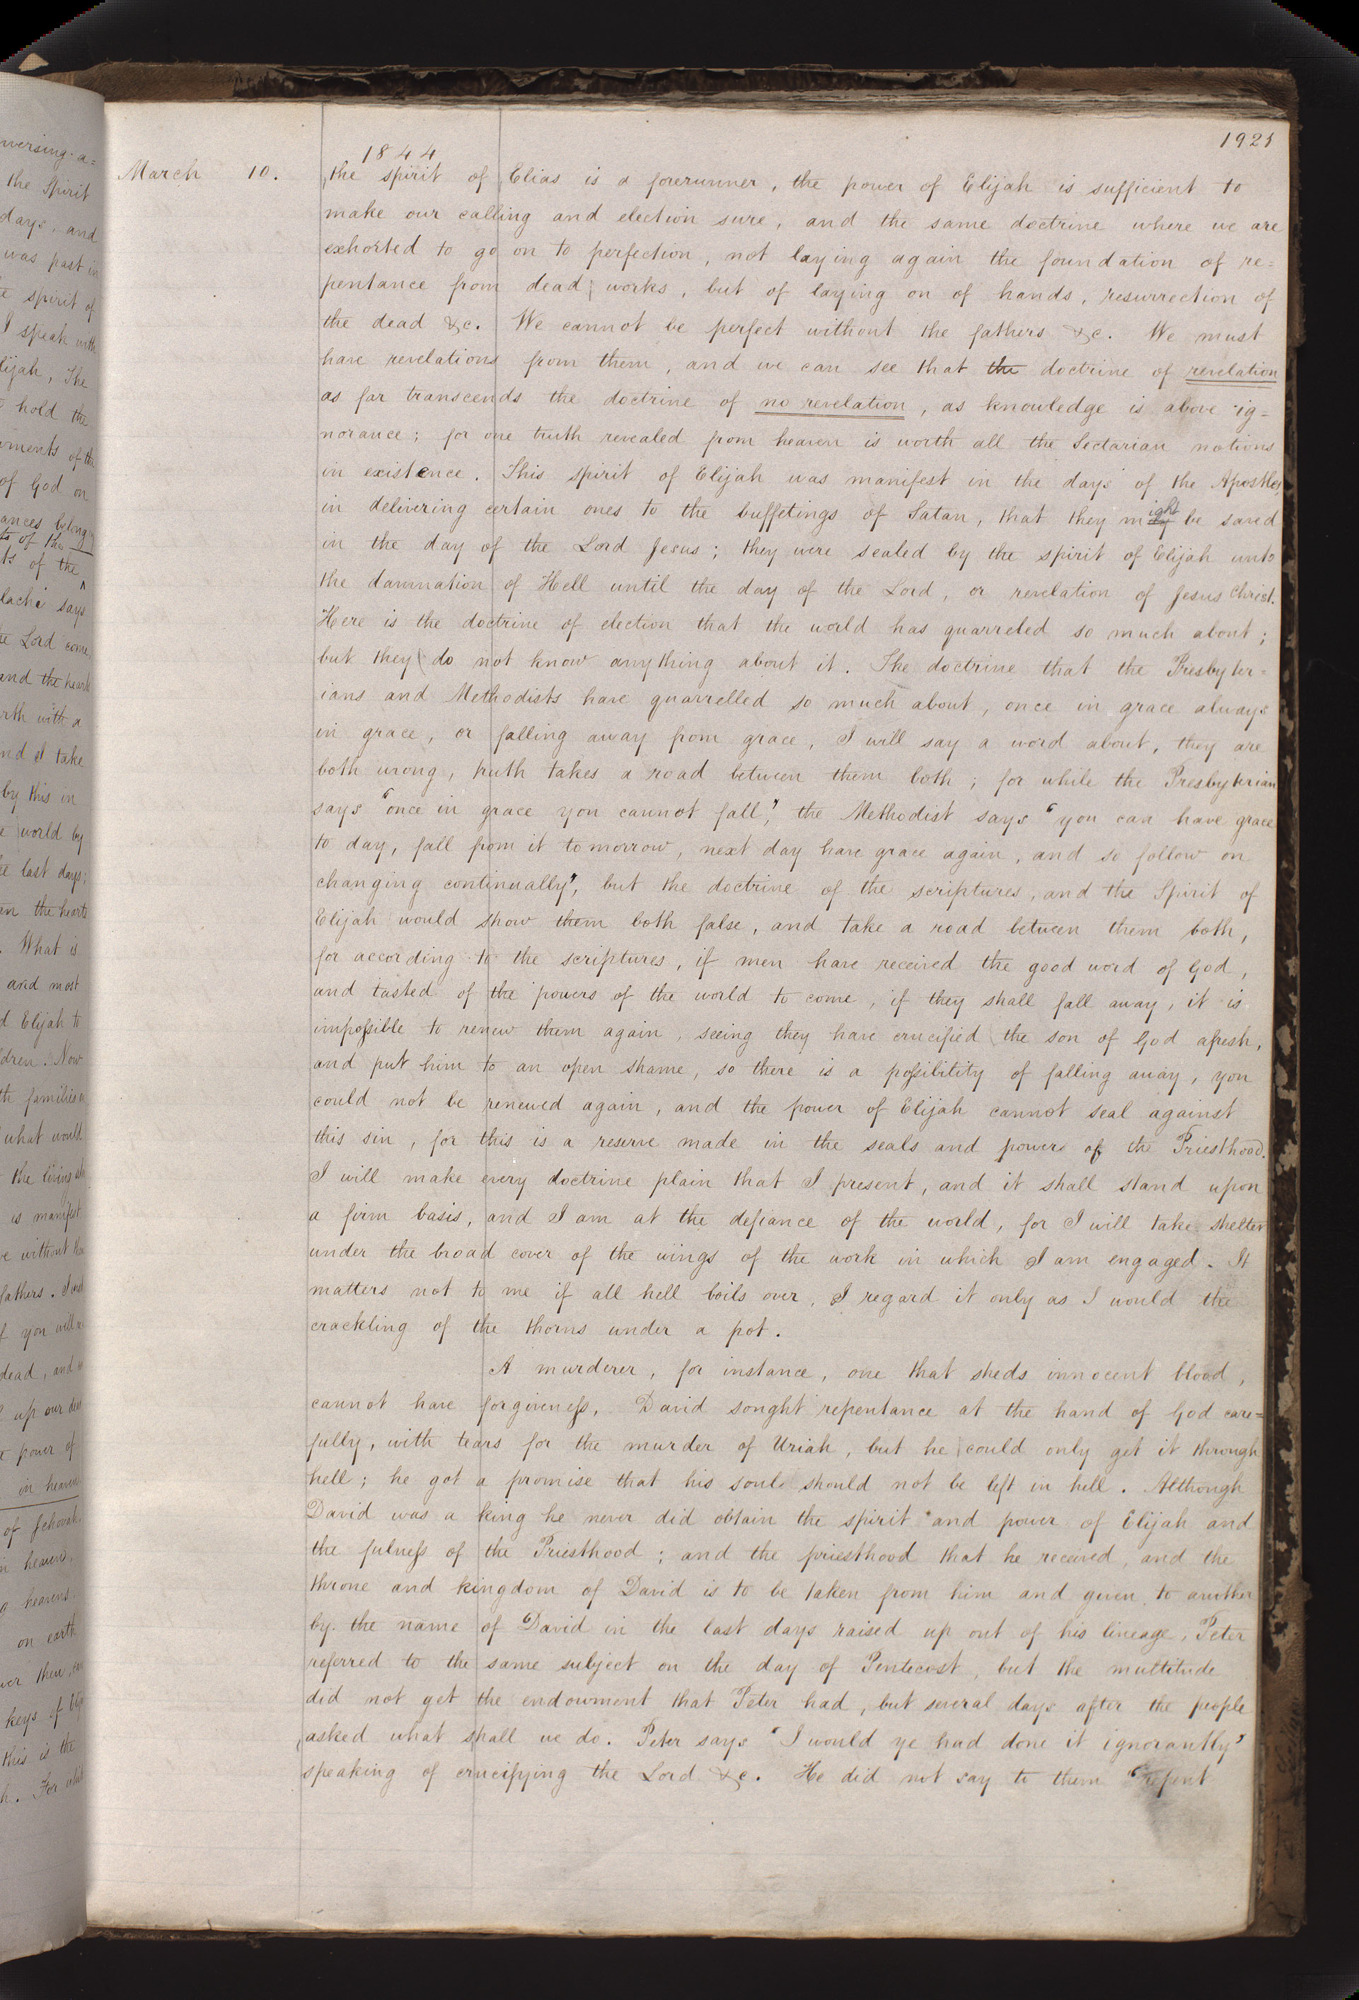 1921
1844
March 10. the spirit of Elias is a forerunner, the power of Elijah is sufficient to
make our calling and election sure, and the same doctrine where we are
exhorted to go on to perfection, not laying again the foundation of re=
pentance from dead works, but of laying on of hands, resurrection of
the dead &c. We cannot be perfect without the fathers &c. We must
have revelations from them, and we can see that the doctrine of revelation
as far transcends the doctrine of no revelation, as knowledge is above ig=
norance; for one truth revealed from heaven is worth all the Sectarian notions
in existence. This spirit of Elijah was manifest in the days of the Apostles,
in delivering certain ones to the buffetings of Satan, that they might be saved
in the day of the Lord Jesus; they were sealed by the spirit of Elijah unto
the damnation of Hell until the day of the Lord, or revelation of Jesus Christ.
Here is the doctrine of election that the world has quarreled so much about;
but they do not know anything about it. The doctrine that the Presbyter=
ians and Methodists have quarrelled so much about, once in grace always
in grace, or falling away from grace, I will say a word about, they are
both wrong, truth takes a road between them both; for while the Presbyterian
says "once in grace you cannot fall," the Methodist says "you can have grace
to day, fall from it tomorrow, next day have grace again, and so follow on
changing continually", but the doctrine of the scriptures, and the Spirit of
Elijah would show them both false, and take a road between them both,
for according to the scriptures, if men have received the good word of God,
and tasted of the powers of the world to come, if they shall fall away, it is
impossible to renew them again, seeing they have crucified the son of God afresh,
and put him to an open shame, so there is a possibility of falling away, you
could not be renewed again, and the power of Elijah cannot seal against
this sin, for this is a reserve made in the seals and power of the Priesthood.
I will make every doctrine plain that I present, and it shall stand upon
a firm basis, and I am at the defiance of the world, for I will take shelter
under the broad cover of the wings of the work in which I am engaged. It
matters not to me if all hell boils over, I regard it only as I would the
crackling of the thorns under a pot.
A murderer, for instance, one that sheds innocent blood,
cannot have forgiveness. David sought repentance at the hand of God care=
fully, with tears for the murder of Uriah, but he could only get it through
hell; he got a promise that his soul should not be left in hell. Although
David was a king he never did obtain the spirit and power of Elijah and
the fulness of the Priesthood; and the priesthood that he received, and the
throne and kingdom of David is to be taken from him and given to another
by the name of David in the last days raised up out of his lineage. Peter
referred to the same subject on the day of Pentecost, but the multitude
did not get the endowment that Peter had, but several days after the people
asked what shall we do. Peter says "I would ye had done it ignorantly"
speaking of crucifying the Lord &c. He did not say to them "repent